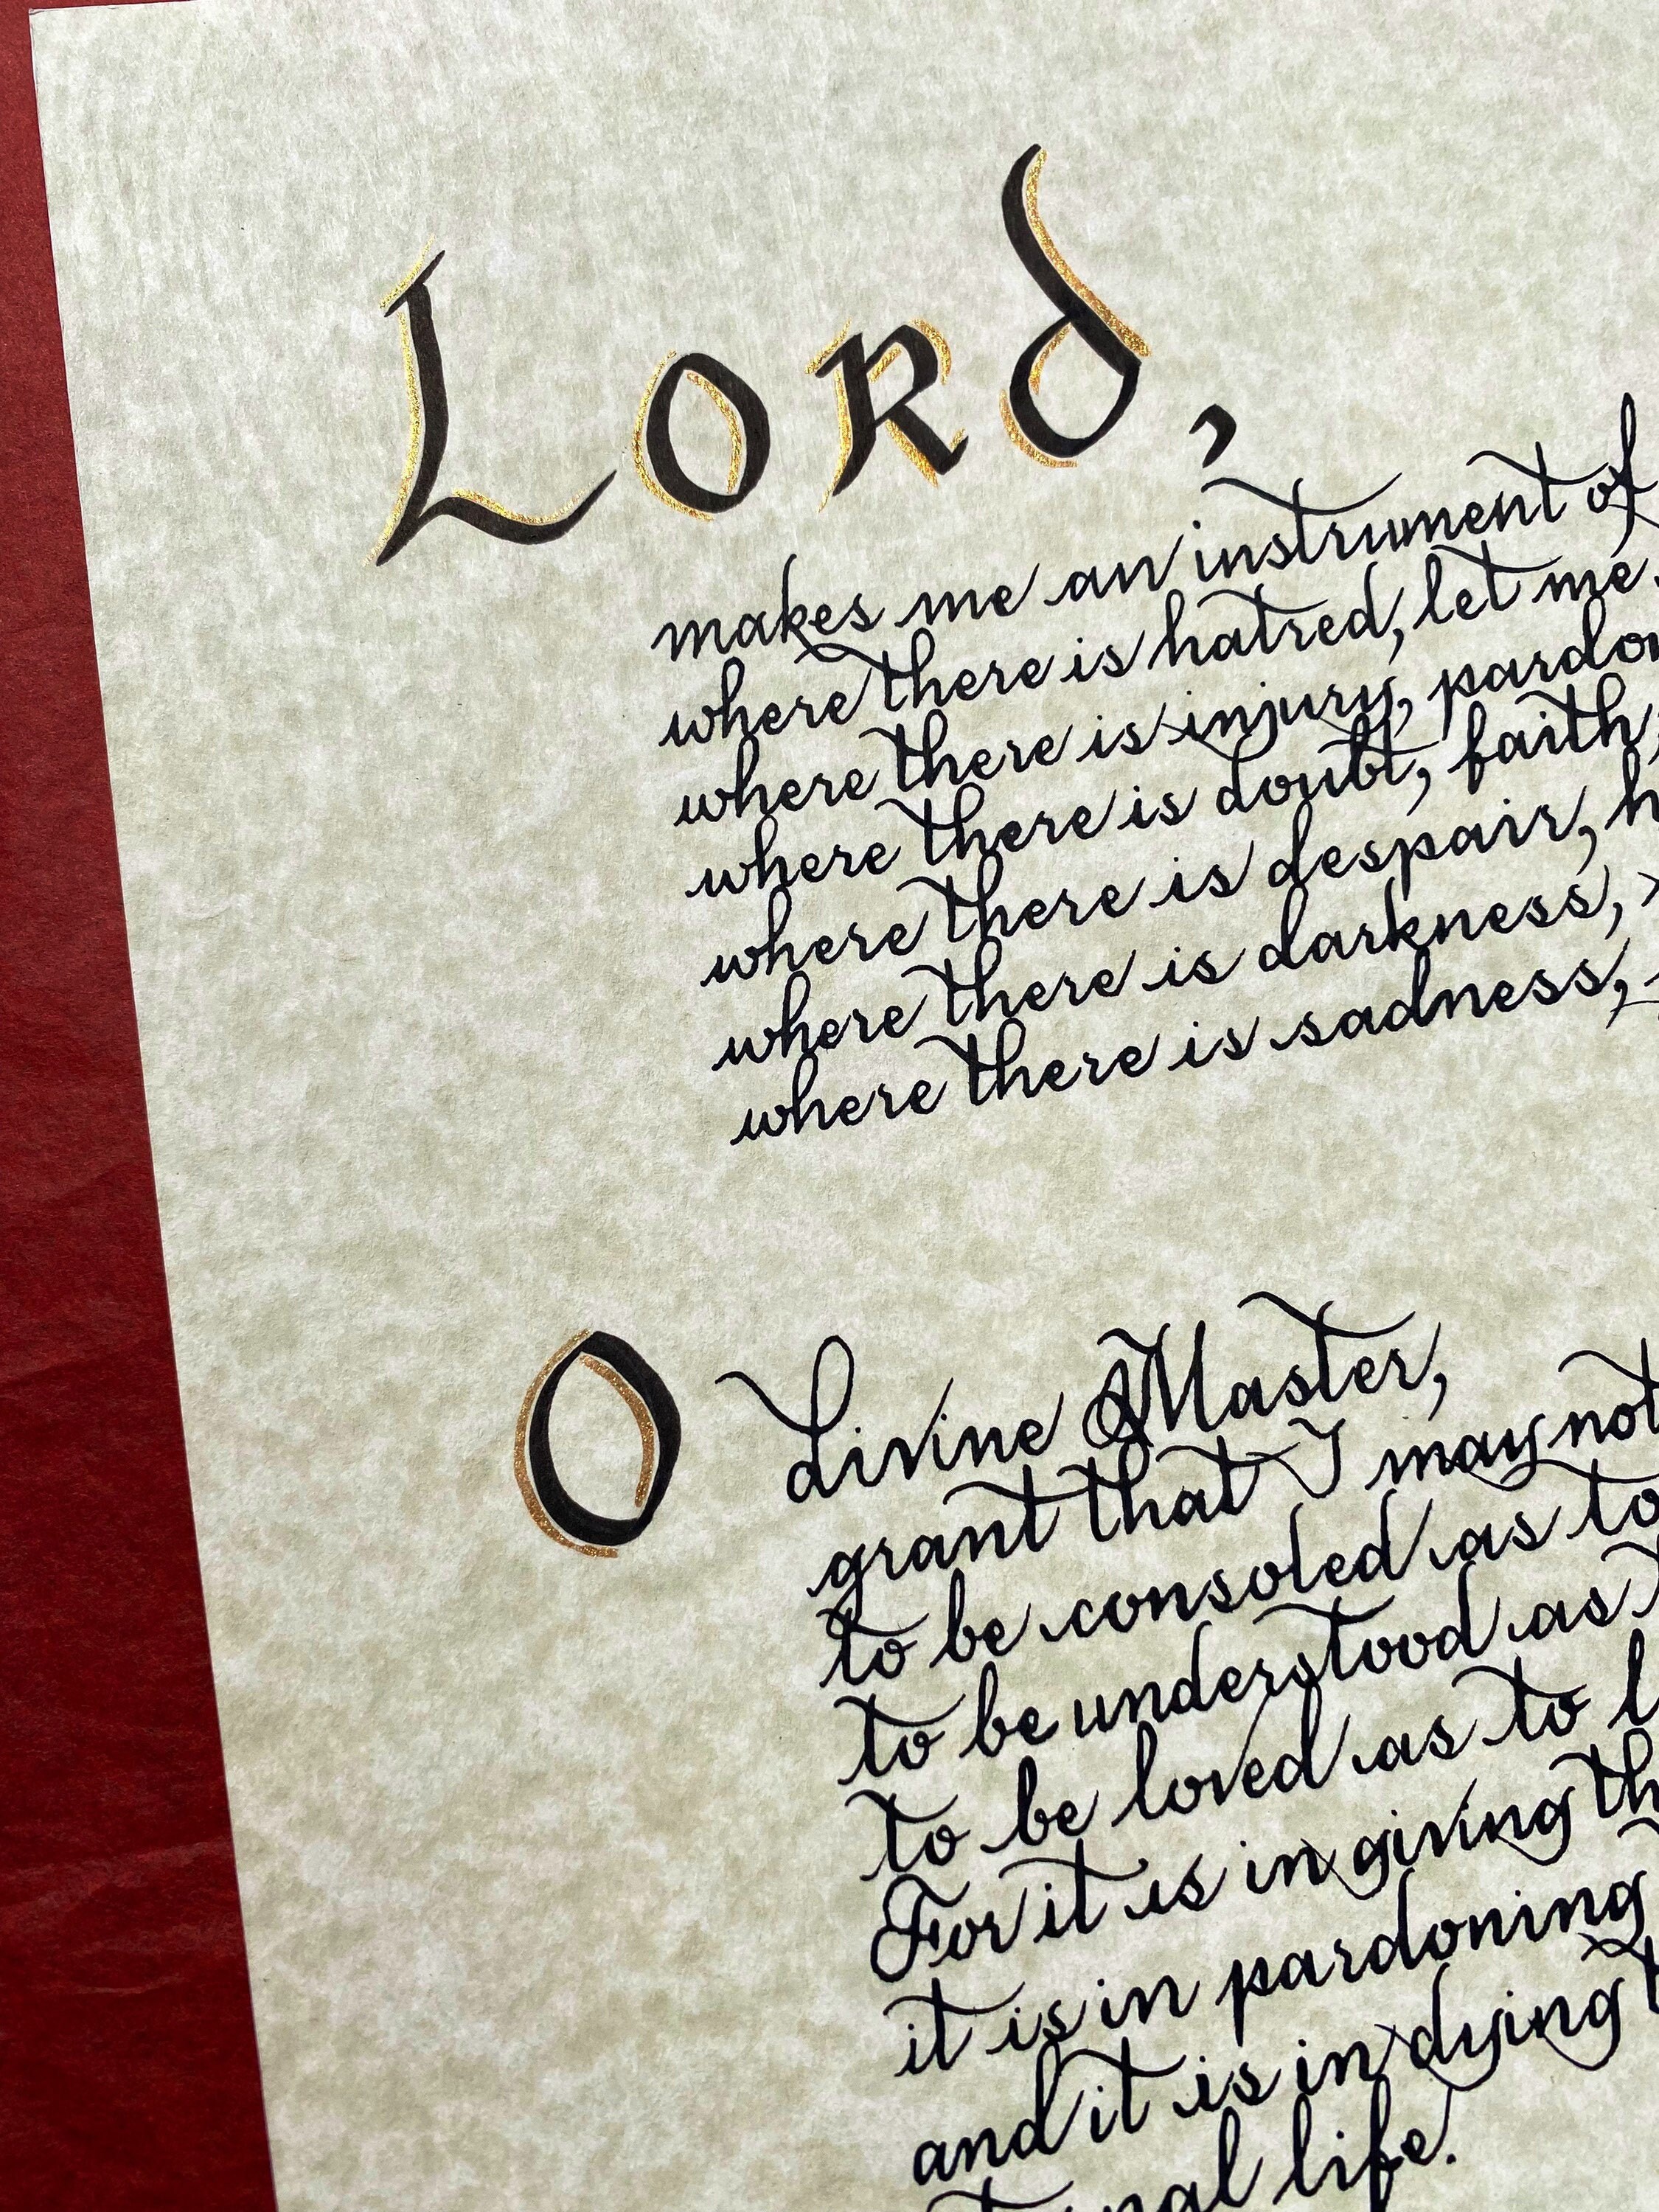 Lord,
makes me an instrument of
where there is hatred, let me
where there is injury, pardon
where there is doubt, faith,
where there is despair, h
where there is darkness,
where there is sadness,
O Divine Master,
grant that I may not
to be consoled as to
to be understood as
to be loved as to l
For it is in giving th
it is in pardoning
and it is in dying t
nal life.